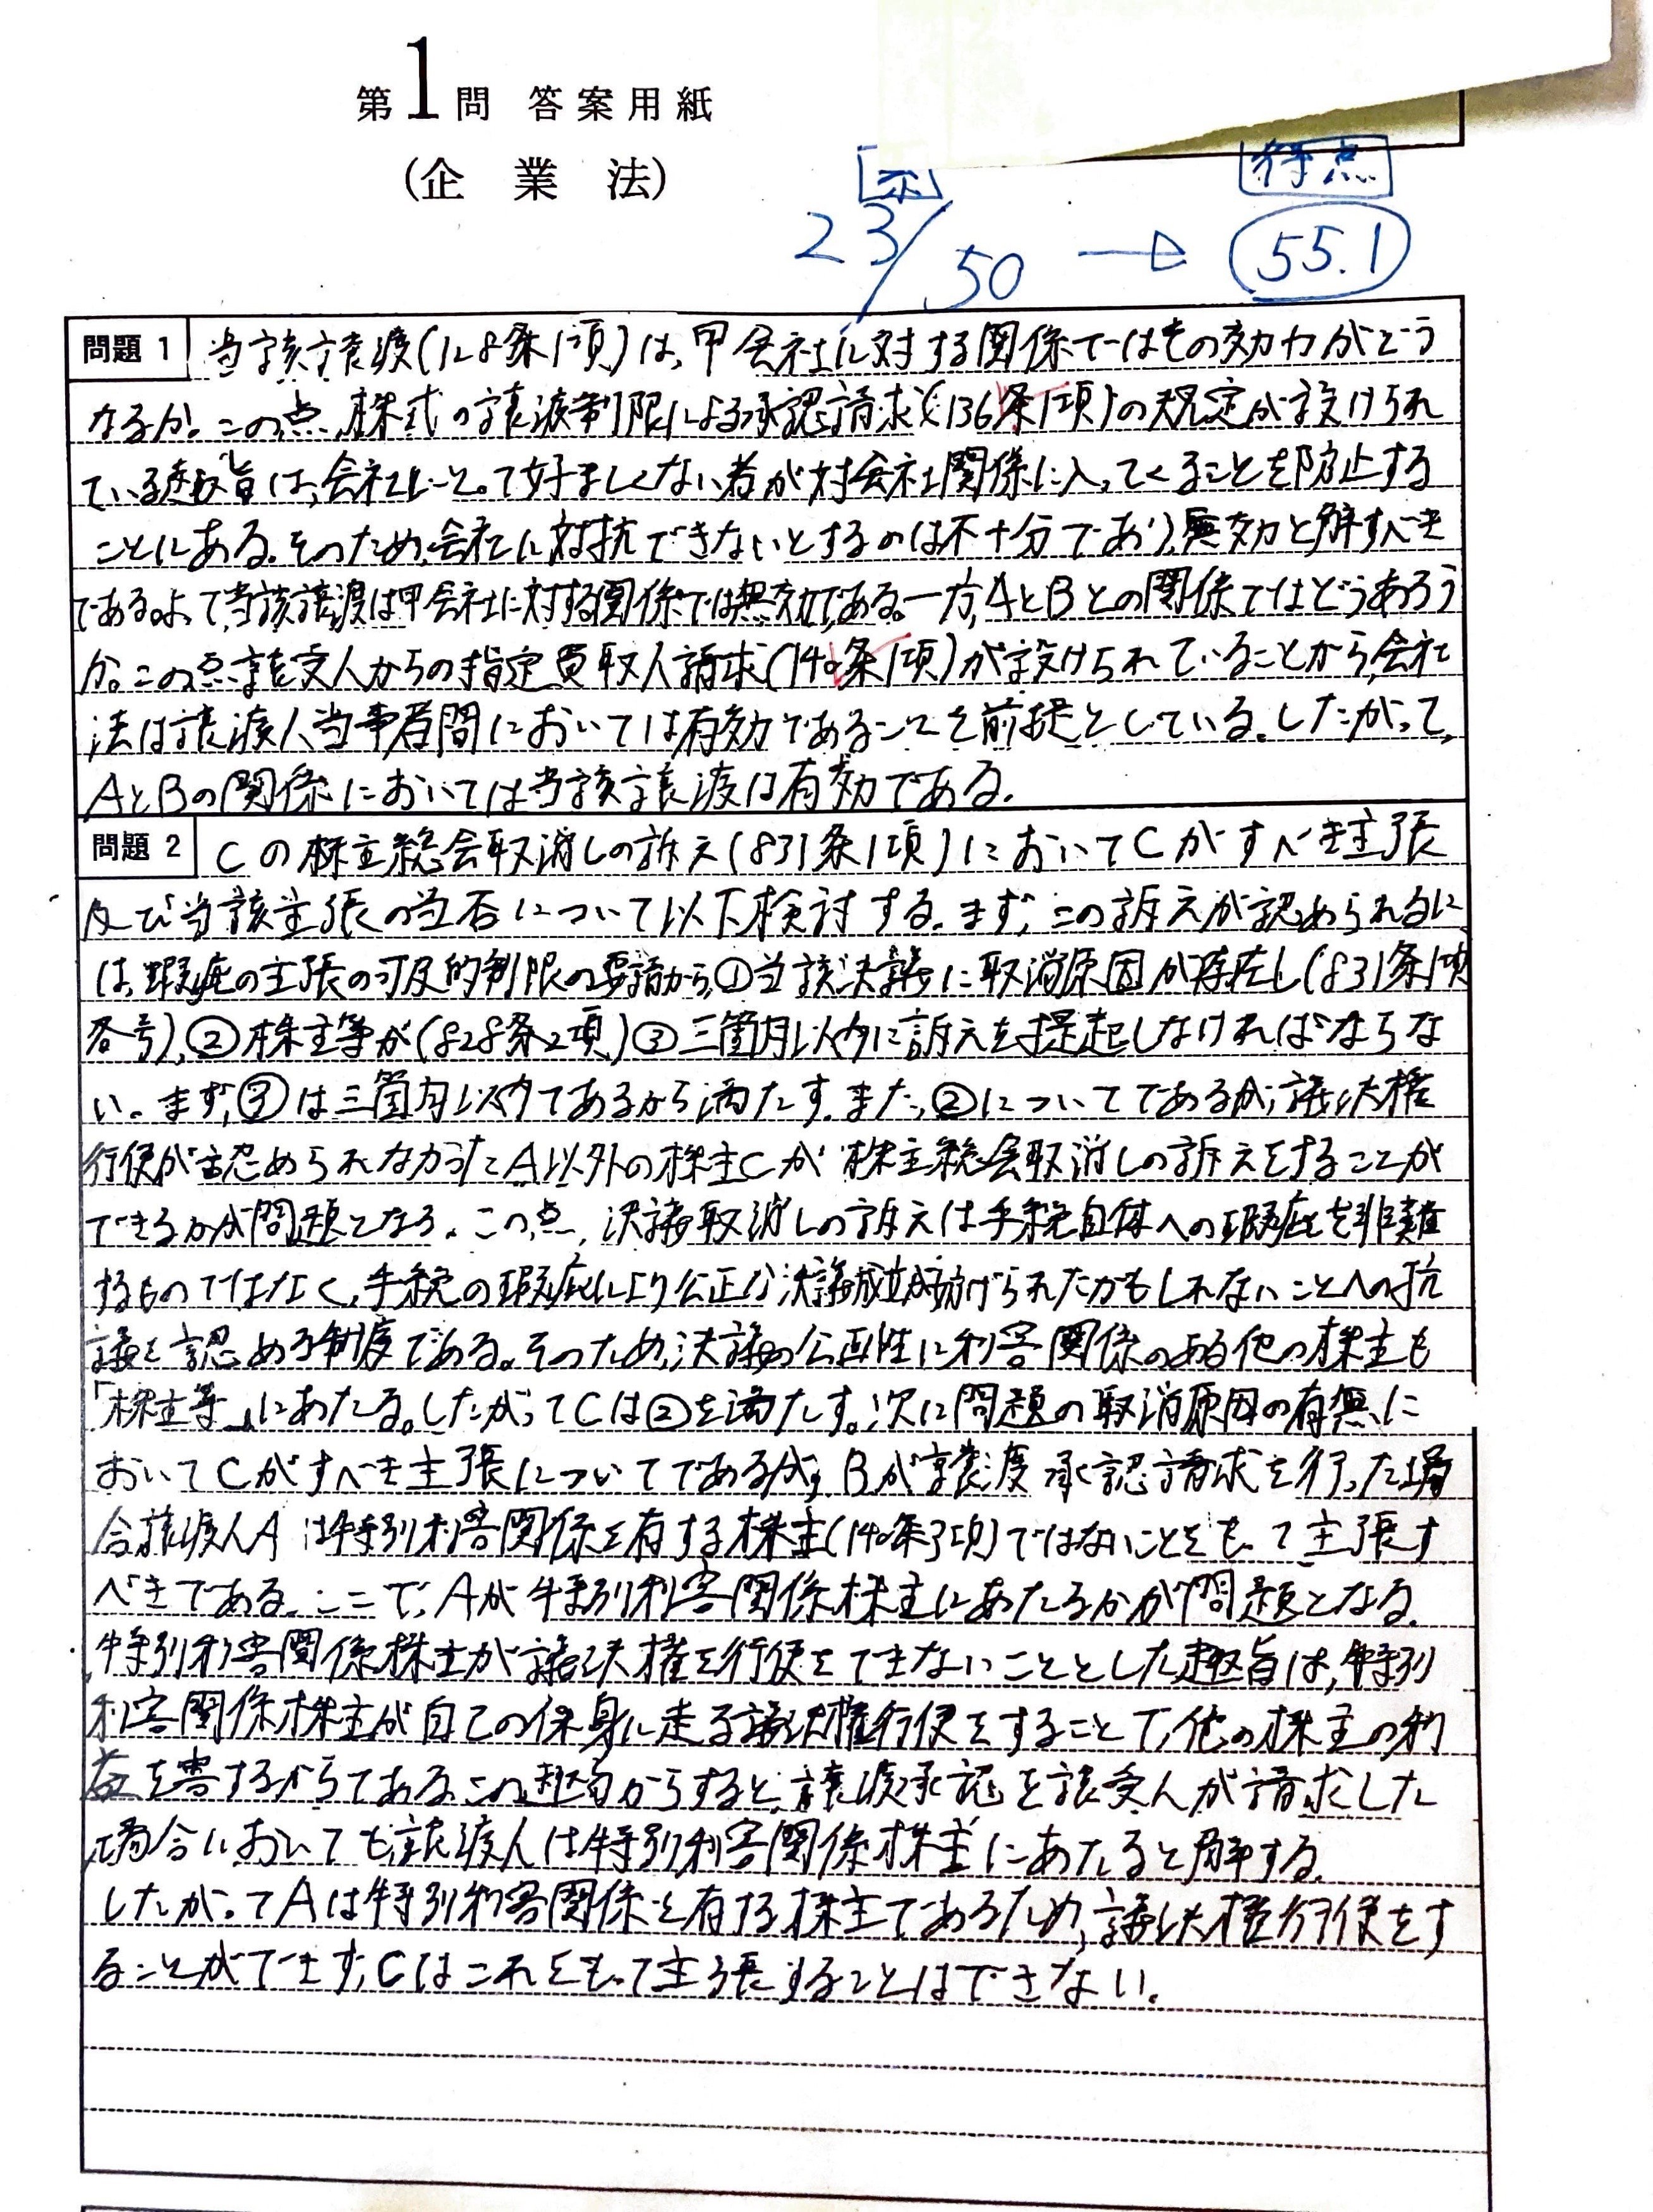 第1問 答案用紙
(企業法)
得点
23/50 → 55.1
問題1 当該譲渡(128条1項)は、甲会社に対する関係ではその効力がどう
なるか。この点、株式の譲渡制限による承認請求(136条1項)の規定が設けられ
ている趣旨は、会社にとって好ましくない者が対会社関係に入ってくることを防止する
ことにある。そのため、会社に対抗できないとするのは不十分であり、無効と解すべき
である。よって、当該譲渡は甲会社に対する関係では無効である。一方、AとBとの関係ではどうあろう
か。この点、譲受人からの指定買取人請求(140条1項)が設けられていることから、会社
法は譲渡人当事者間においては有効であることを前提としている。したがって、
AとBの関係においては当該譲渡は有効である。
問題2 Cの株主総会取消しの訴え(831条1項)においてCがすべき主張
及び当該主張の当否について以下検討する。まず、この訴えが認められるに
は、瑕疵の主張の可及的制限の要請から、①当該決議に取消原因が存在し(831条1項
各号)、②株主等が(828条2項)③三箇月以内に訴えを提起しなければならな
い。まず、③は三箇月以内であるから満たす。また、②についてであるが、議決権
行使が認められなかったA以外の株主Cが株主総会取消しの訴えをすることが
できるかが問題となる。この点、決議取消しの訴えは手続自体への瑕疵を非難
するものではなく、手続の瑕疵により公正な決議成立が妨げられたかもしれないことへの抗
議を認める制度である。そのため、決議の公正性に利害関係のある他の株主も
「株主等」にあたる。したがってCは②を満たす。次に問題の取消原因の有無に
おいてCがすべき主張についてであるが、Bが譲渡承認請求を行った場
合譲渡人Aは特別利害関係を有する株主(140条3項)ではないことをもって主張す
べきである。ここで、Aが特別利害関係株主にあたるかが問題となる。
特別利害関係株主が議決権を行使をできないこととした趣旨は、特別
利害関係株主が自己の保身に走る議決権行使をすることで、他の株主の利
益を害するからである。この趣旨からすると、譲渡承認を譲受人が請求した
場合においても譲渡人は特別利害関係株主にあたると解する。
したがってAは特別利害関係を有する株主であるため、議決権行使をす
ることができず、Cはこれをもって主張することはできない。